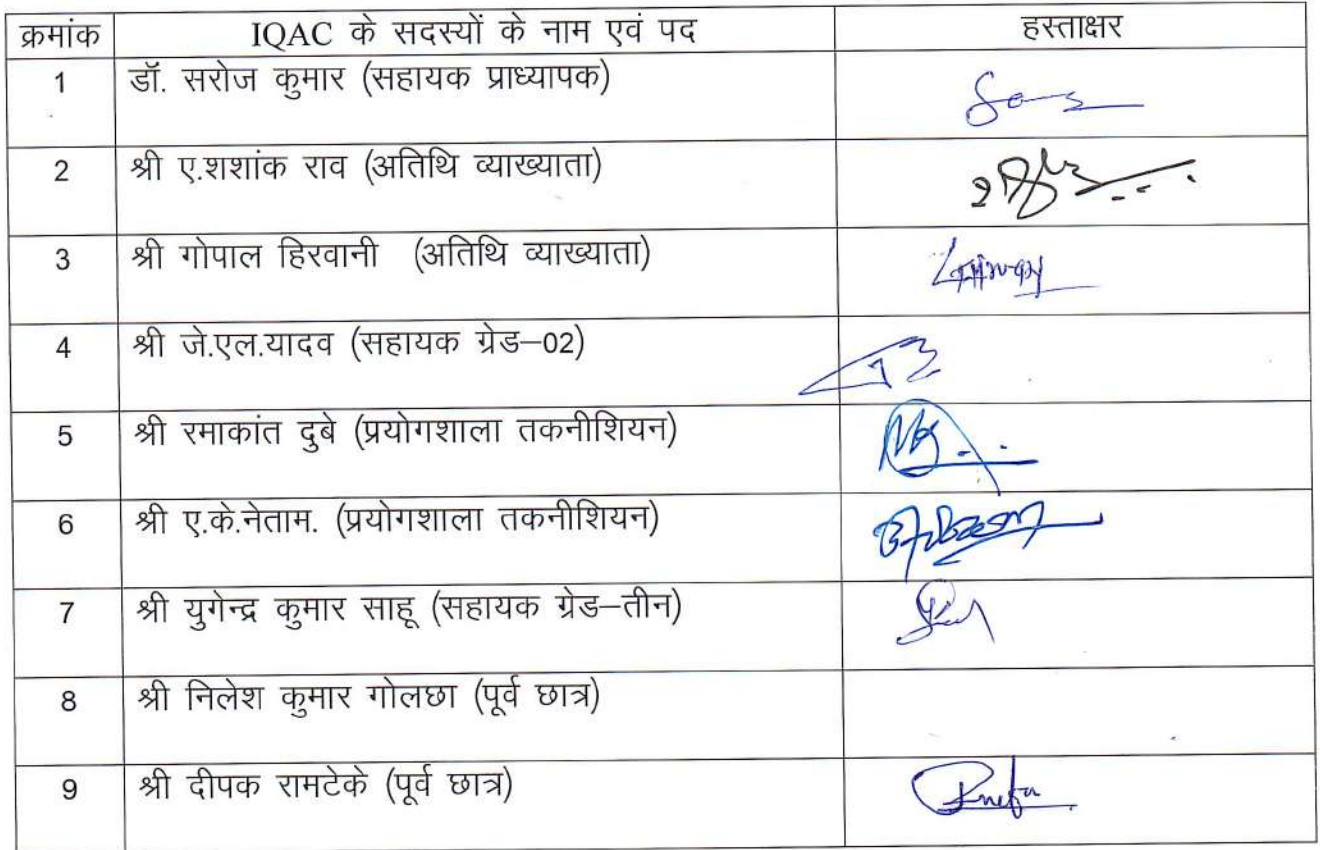 क्रमांक IQAC के सदस्यों के नाम एवं पद हस्ताक्षर
1 डॉ. सरोज कुमार (सहायक प्राध्यापक)
2 श्री ए.शशांक राव (अतिथि व्याख्याता)
3 श्री गोपाल हिरवानी (अतिथि व्याख्याता)
4 श्री जे.एल.यादव (सहायक ग्रेड–02)
5 श्री रमाकांत दुबे (प्रयोगशाला तकनीशियन)
6 श्री ए.के.नेताम. (प्रयोगशाला तकनीशियन)
7 श्री युगेन्द्र कुमार साहू (सहायक ग्रेड–तीन)
8 श्री निलेश कुमार गोलछा (पूर्व छात्र)
9 श्री दीपक रामटेके (पूर्व छात्र)